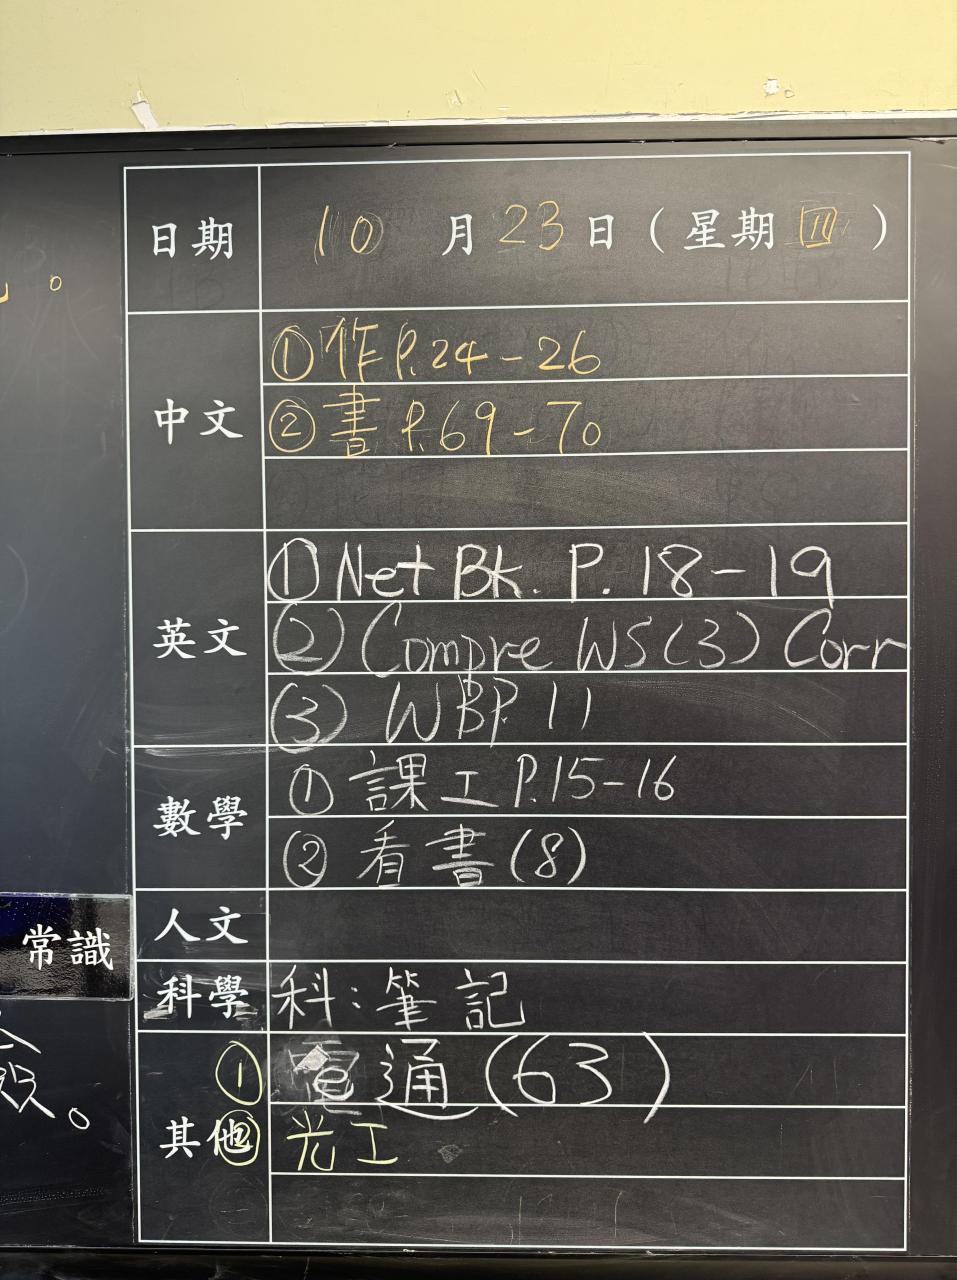 日期 10 月 23 日 ( 星期 四 )
中文
①作P.24-26
②書P.69-70
英文
① Net Bk. P. 18-19
(2) Compre WS(3) Corr
(3) WBP.11
數學
① 課工P.15-16
② 看書(8)
人文
常識
科學 科:筆記
其他
① 通(63)
② 光工